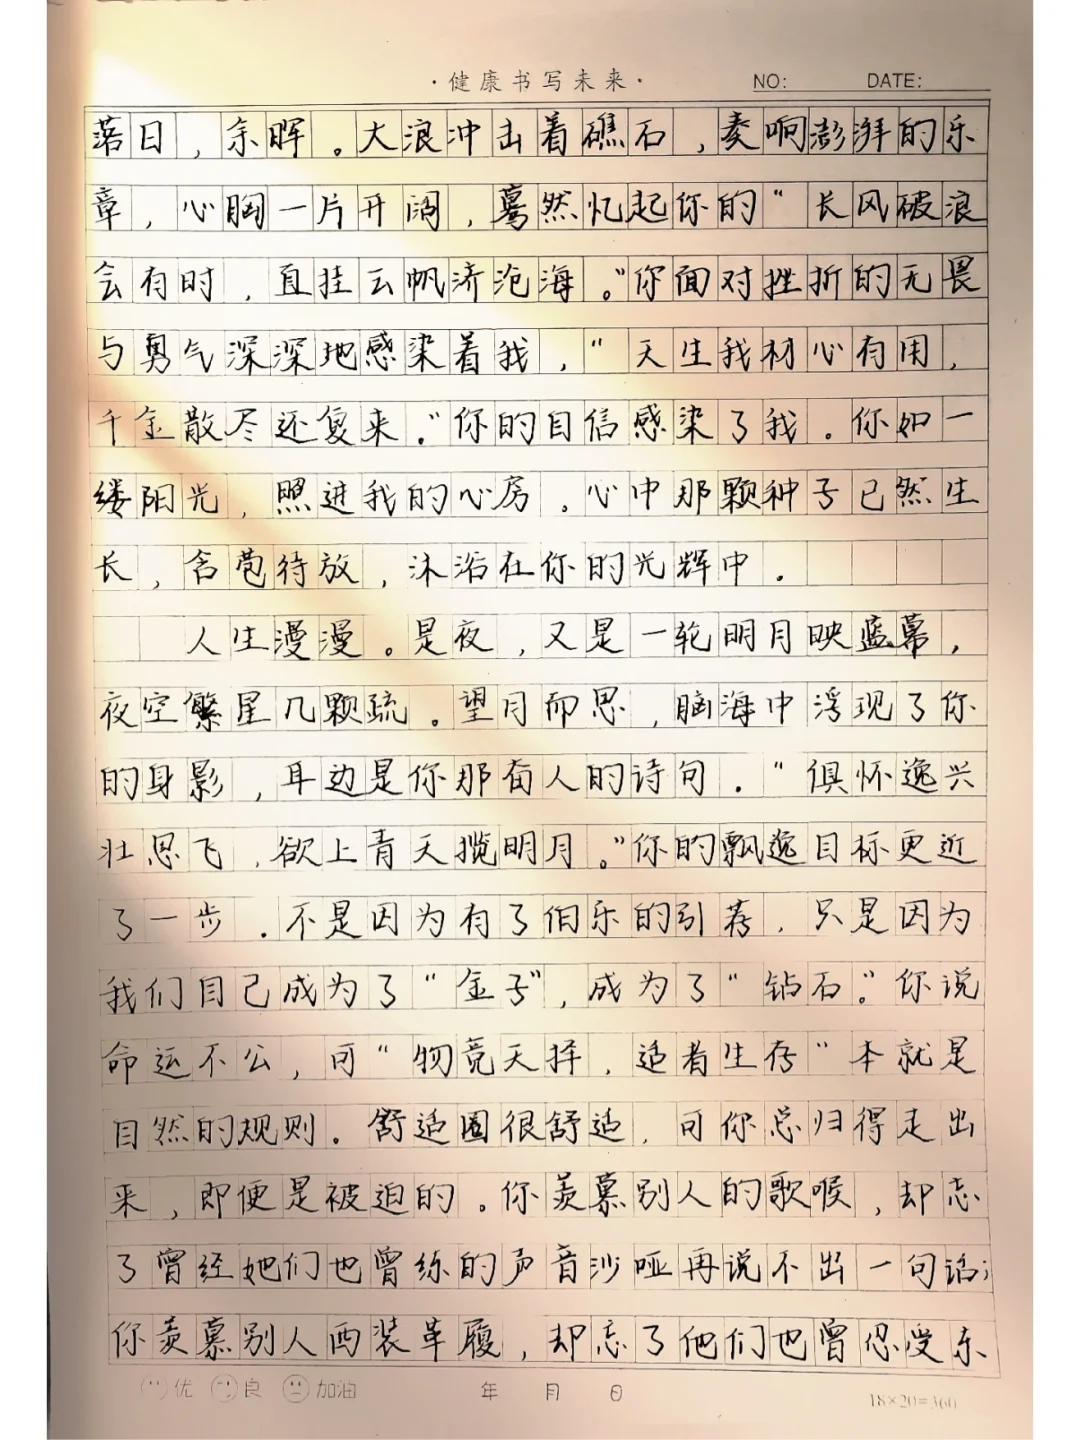 ·健康书写未来·
NO: DATE:
落日，余晖。大浪冲击着礁石，奏响澎湃的乐
章，心胸一片开阔，蓦然忆起你的“长风破浪
会有时，直挂云帆济沧海。”你面对挫折的无畏
与勇气深深地感染着我，“天生我材心有用，
千金散尽还复来。”你的自信感染了我。你如一
缕阳光，照进我的心房。心中那颗种子已然生
长，含苞待放，沐浴在你的光辉中。
人生漫漫。是夜，又是一轮明月映蓝幕，
夜空繁星几颗疏。望月而思，脑海中浮现了你
的身影，耳边是你那奋人的诗句。“俱怀逸兴
壮思飞，欲上青天揽明月。”你的飘逸目标更近
了一步。不是因为有了伯乐的引荐，只是因为
我们自己成为了“金子”，成为了“钻石。”你说
命运不公，可“物竟天择，适者生存”本就是
自然的规则。舒适圈很舒适，可你总归得走出
来，即便是被迫的。你羡慕别人的歌喉，却忘
了曾经她们也曾练的声音沙哑再说不出一句话；
你羡慕别人西装革履，却忘了他们也曾忍受东
优 良 加油 年 月 日
18×20=360